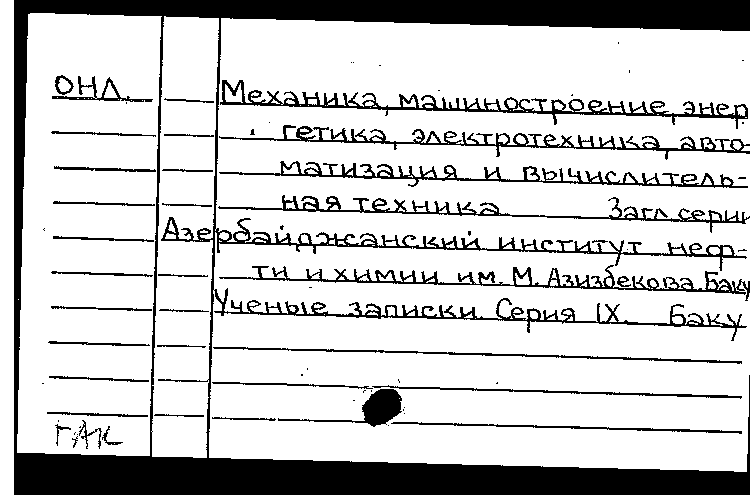 ОНЛ. Механика, машиностроение, энер
гетика, электротехника, авто-
матизация и вычислитель-
ная техника Загл серии
Азербайджанский институт неф-
ти и химии им. М. Азизбекова. Баку
Ученые записки. Серия IX. Баку
ГАК